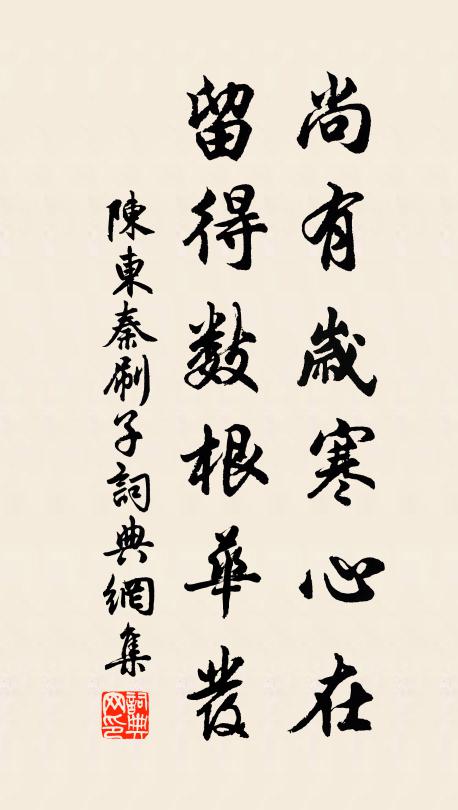 尚有歲寒心在
留得數根華發
陳東秦刷子詞典網集
詞典網印